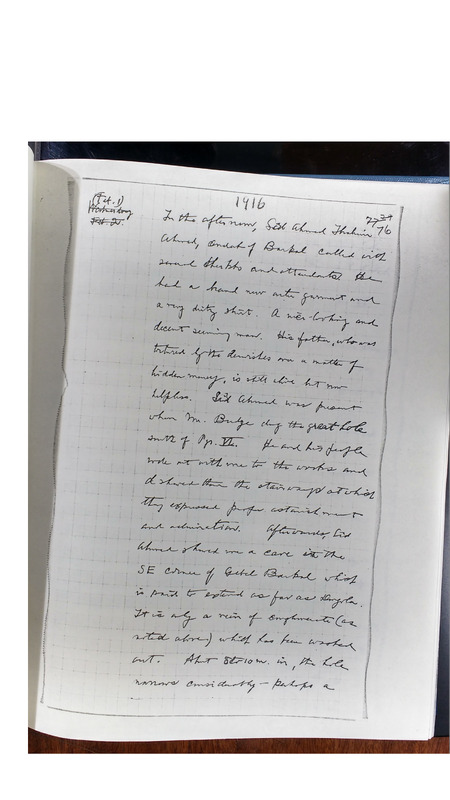 1916
(Feb. 1)
Wednesday
Feb. 2.
77
76
In the afternoon, Sid Ahmed Ibrahim
Ahmed, omdah of Barkal called with
several sheikhs and attendants. He
had a brand new outer garment and
a very dirty shirt. A nice-looking and
decent seeming man. His father, who was
tortured by the dervishes over a matter of
hidden money, is still alive but now
helpless. Sid Ahmed was present
when Mr. Budge dug the great hole
south of Pyr. VI. He and his people
rode out with me to the works and
I showed them the stairways at which
they expressed proper astonishment
and admiration. Afterwards, Sid
Ahmed showed me a cave in the
SE corner of Gebel Barkal which
is said to extend as far as Dongola.
It is only a vein of conglomerate (as
noted above) which has been washed
out. About 8 to 10 m. in, the hole
narrows considerably – perhaps a